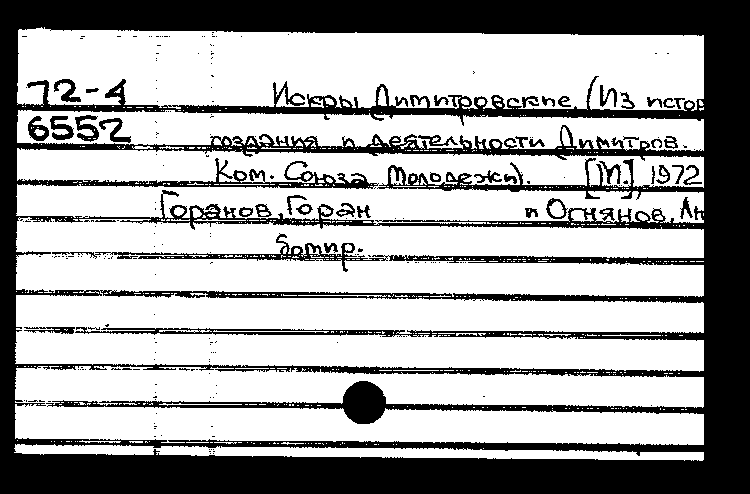 72-4 Искры Димитровские. (Из истор
6552 создания и деятельности Димитров.
Ком. Союза Молодежи). [М.], 1972
Горанов, Горан и Огнянов, Лю
бомир.